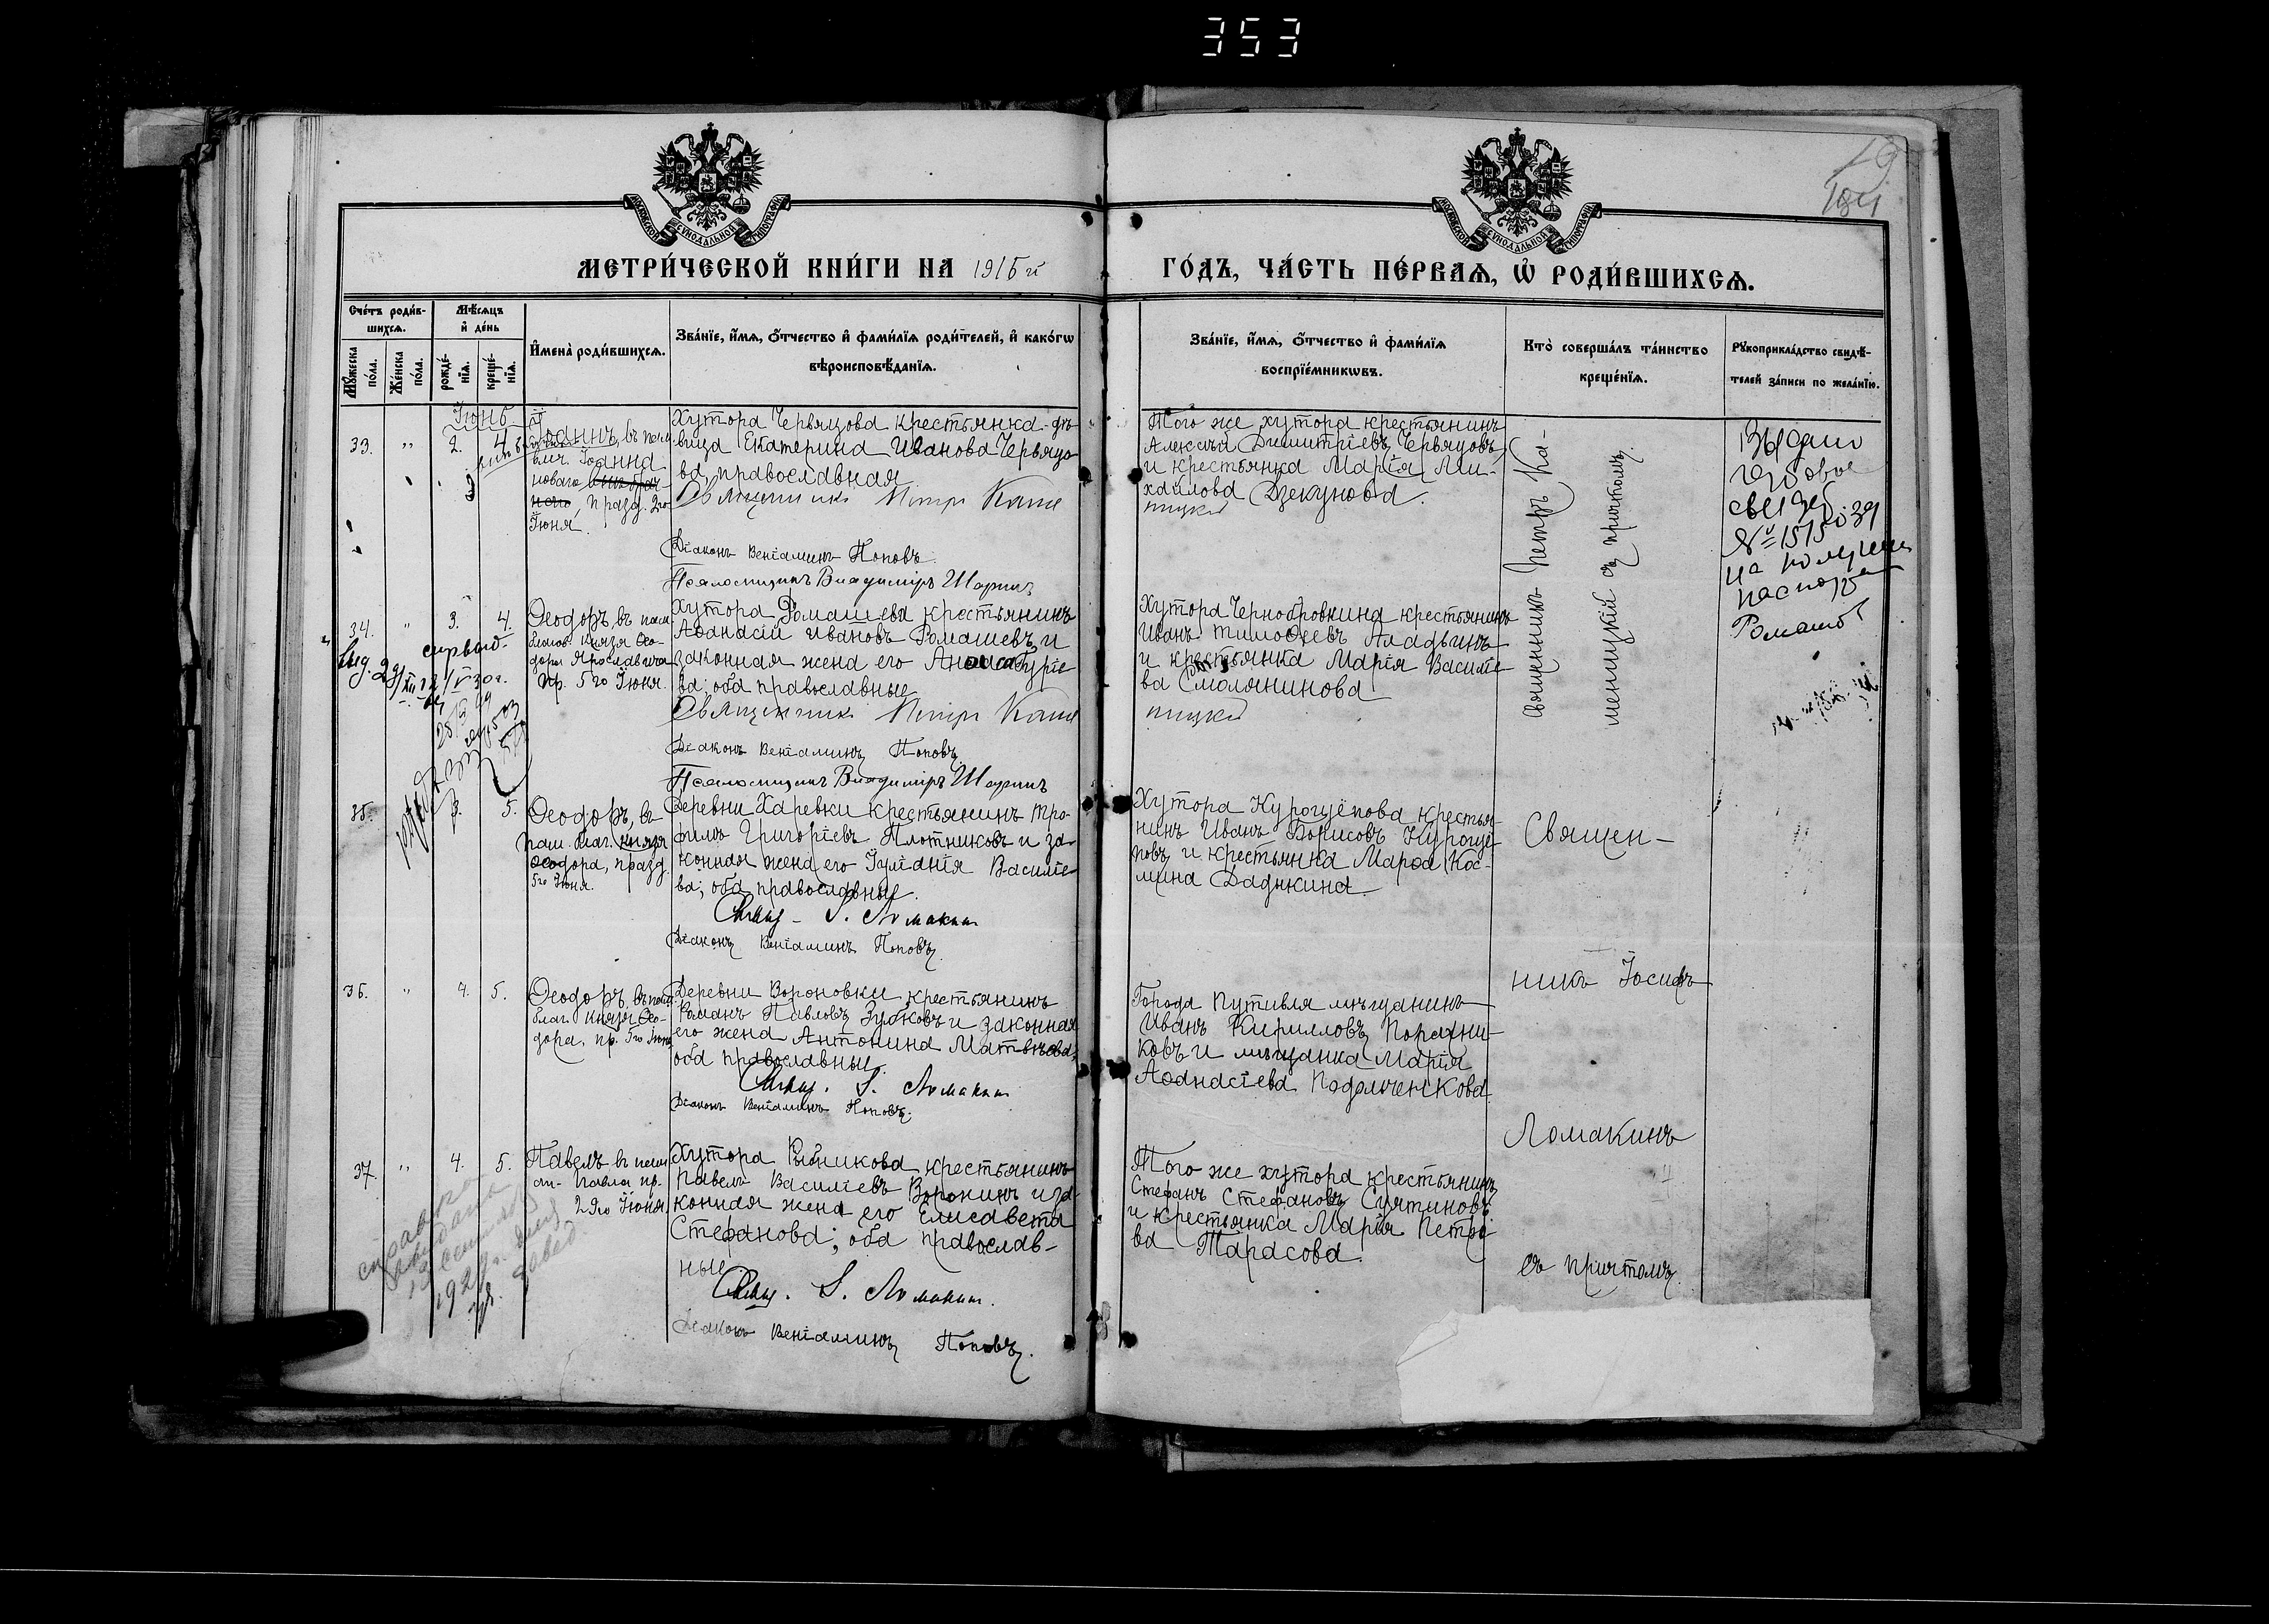 353
19
МОСКОВСКОЙ СѴНОДАЛЬНОЙ ТИПОГРАФІИ
МОСКОВСКОЙ СѴНОДАЛЬНОЙ ТИПОГРАФІИ
МЕТРИ́ЧЕСКОЙ КНИ́ГИ НА 1915 й
ГО́ДЪ, ЧА́СТЬ ПЕ́РВАѦ, Ѡ҆ РОДИ́ВШИХСѦ.
Сче́тъ роди́в-
шихсѧ.
Мѣ́сѧцъ
и҆ де́нь
Мꙋ́жеска
по́ла.
Же́нска
по́ла.
рожде́-
нїѧ.
креще́-
нїѧ.
И҆мена̀ роди́вшихсѧ.
Зва́нїе, и҆́мѧ, ѻ҆́тчество и҆ фами́лїѧ роди́телей, и҆ како́гѡ
вѣроисповѣ́данїѧ.
Зва́нїе, и҆́мѧ, ѻ҆́тчество и҆ фами́лїѧ
воспрїе́мникѡвъ.
Кто̀ соверша́лъ та́инство
креще́нїѧ.
Рꙋкоприкла́дство свидѣ́-
телей за́писи по жела́нїю.
Іюнь
33. " 2. 4.
Іоаннъ, въ пам.
влч. Іоанна
новаго
, празд. 2го
Іюня.
Хутора Червяцова крестьянка-дѣ-
вица Екатерина Иванова Червяцо-
ва, православная
Священникъ Петръ Каме
ницкій
Діаконъ Веніаминъ Поповъ.
Псаломщикъ Владиміръ Шаринъ
Того же хутора крестьянинъ
Алексѣй Димитріевъ Червяцовъ
и крестьянка Марія Ми-
хайлова Дзекунова.
Священникъ Петръ Ка-
меницкій съ причтомъ.
Выдано
свид
№ 1515
на получен
паспорта
34. " 3. 4.
Ѳеодоръ, въ пам.
благов. Князя Ѳео-
дора Ярославича
пр. 5го Іюня.
Хутора Ромашева крестьянинъ
Аѳанасій Ивановъ Ромашевъ, и
законная жена его Гуріе-
ва; оба православные
Священникъ Петръ Каме
ницкій
Діаконъ Веніаминъ Поповъ
Псаломщикъ Владиміръ Шаринъ
Хутора Чернобровкина крестьянинъ
Иванъ Тимоѳеевъ Аладьинъ
и крестьянка Марія Василіе-
ва Смолянинова
35. 3. 5.
Ѳеодоръ, въ
пам. благ. Князя
Ѳеодора, празд.
5го Іюня.
Деревни Харевки крестьянинъ Тро-
фимъ Григоріевъ Плотниковъ и за-
конная жена его Іуліанія Василіе-
ва; оба православные.
Свящ. І. Ломакинъ
Діаконъ Веніаминъ Поповъ.
Хутора Курочуепова крестья-
нинъ Иванъ Борисовъ Курочуе-
повъ и крестьянка Марѳа Кос-
мина Дадыкина.
Священ-
36. " 4. 5.
Ѳеодоръ, въ пам.
благ. Князя Ѳео-
дора, пр. 5го Іюня
Деревни Вороновки крестьянинъ
Романъ Павловъ Зубковъ и законная
его жена Антонина Матвѣева,
оба православные.
Свящ. І. Ломакинъ
Діаконъ Веніаминъ Поповъ.
Города Путивля мѣщанинъ
Иванъ Кирилловъ Порахни-
ковъ и мѣщанка Марія
Аѳанасіева Подольченкова.
никъ Іосифъ
Ломакинъ
37. " 4. 5.
Павелъ въ пам.
ап. Павла пр.
29го Іюня.
Хутора Рыбникова крестьянинъ
Павелъ Василіевъ Воронинъ и за-
конная жена его Елисавета
Стефанова; оба православ-
ные.
Свящ. І. Ломакинъ.
Діаконъ Веніаминъ Поповъ.
Того же хутора крестьянинъ
Стефанъ Стефановъ Сулчиновъ
и крестьянка Марія Петро-
ва Тарасова.
съ причтомъ.
справка
выдана